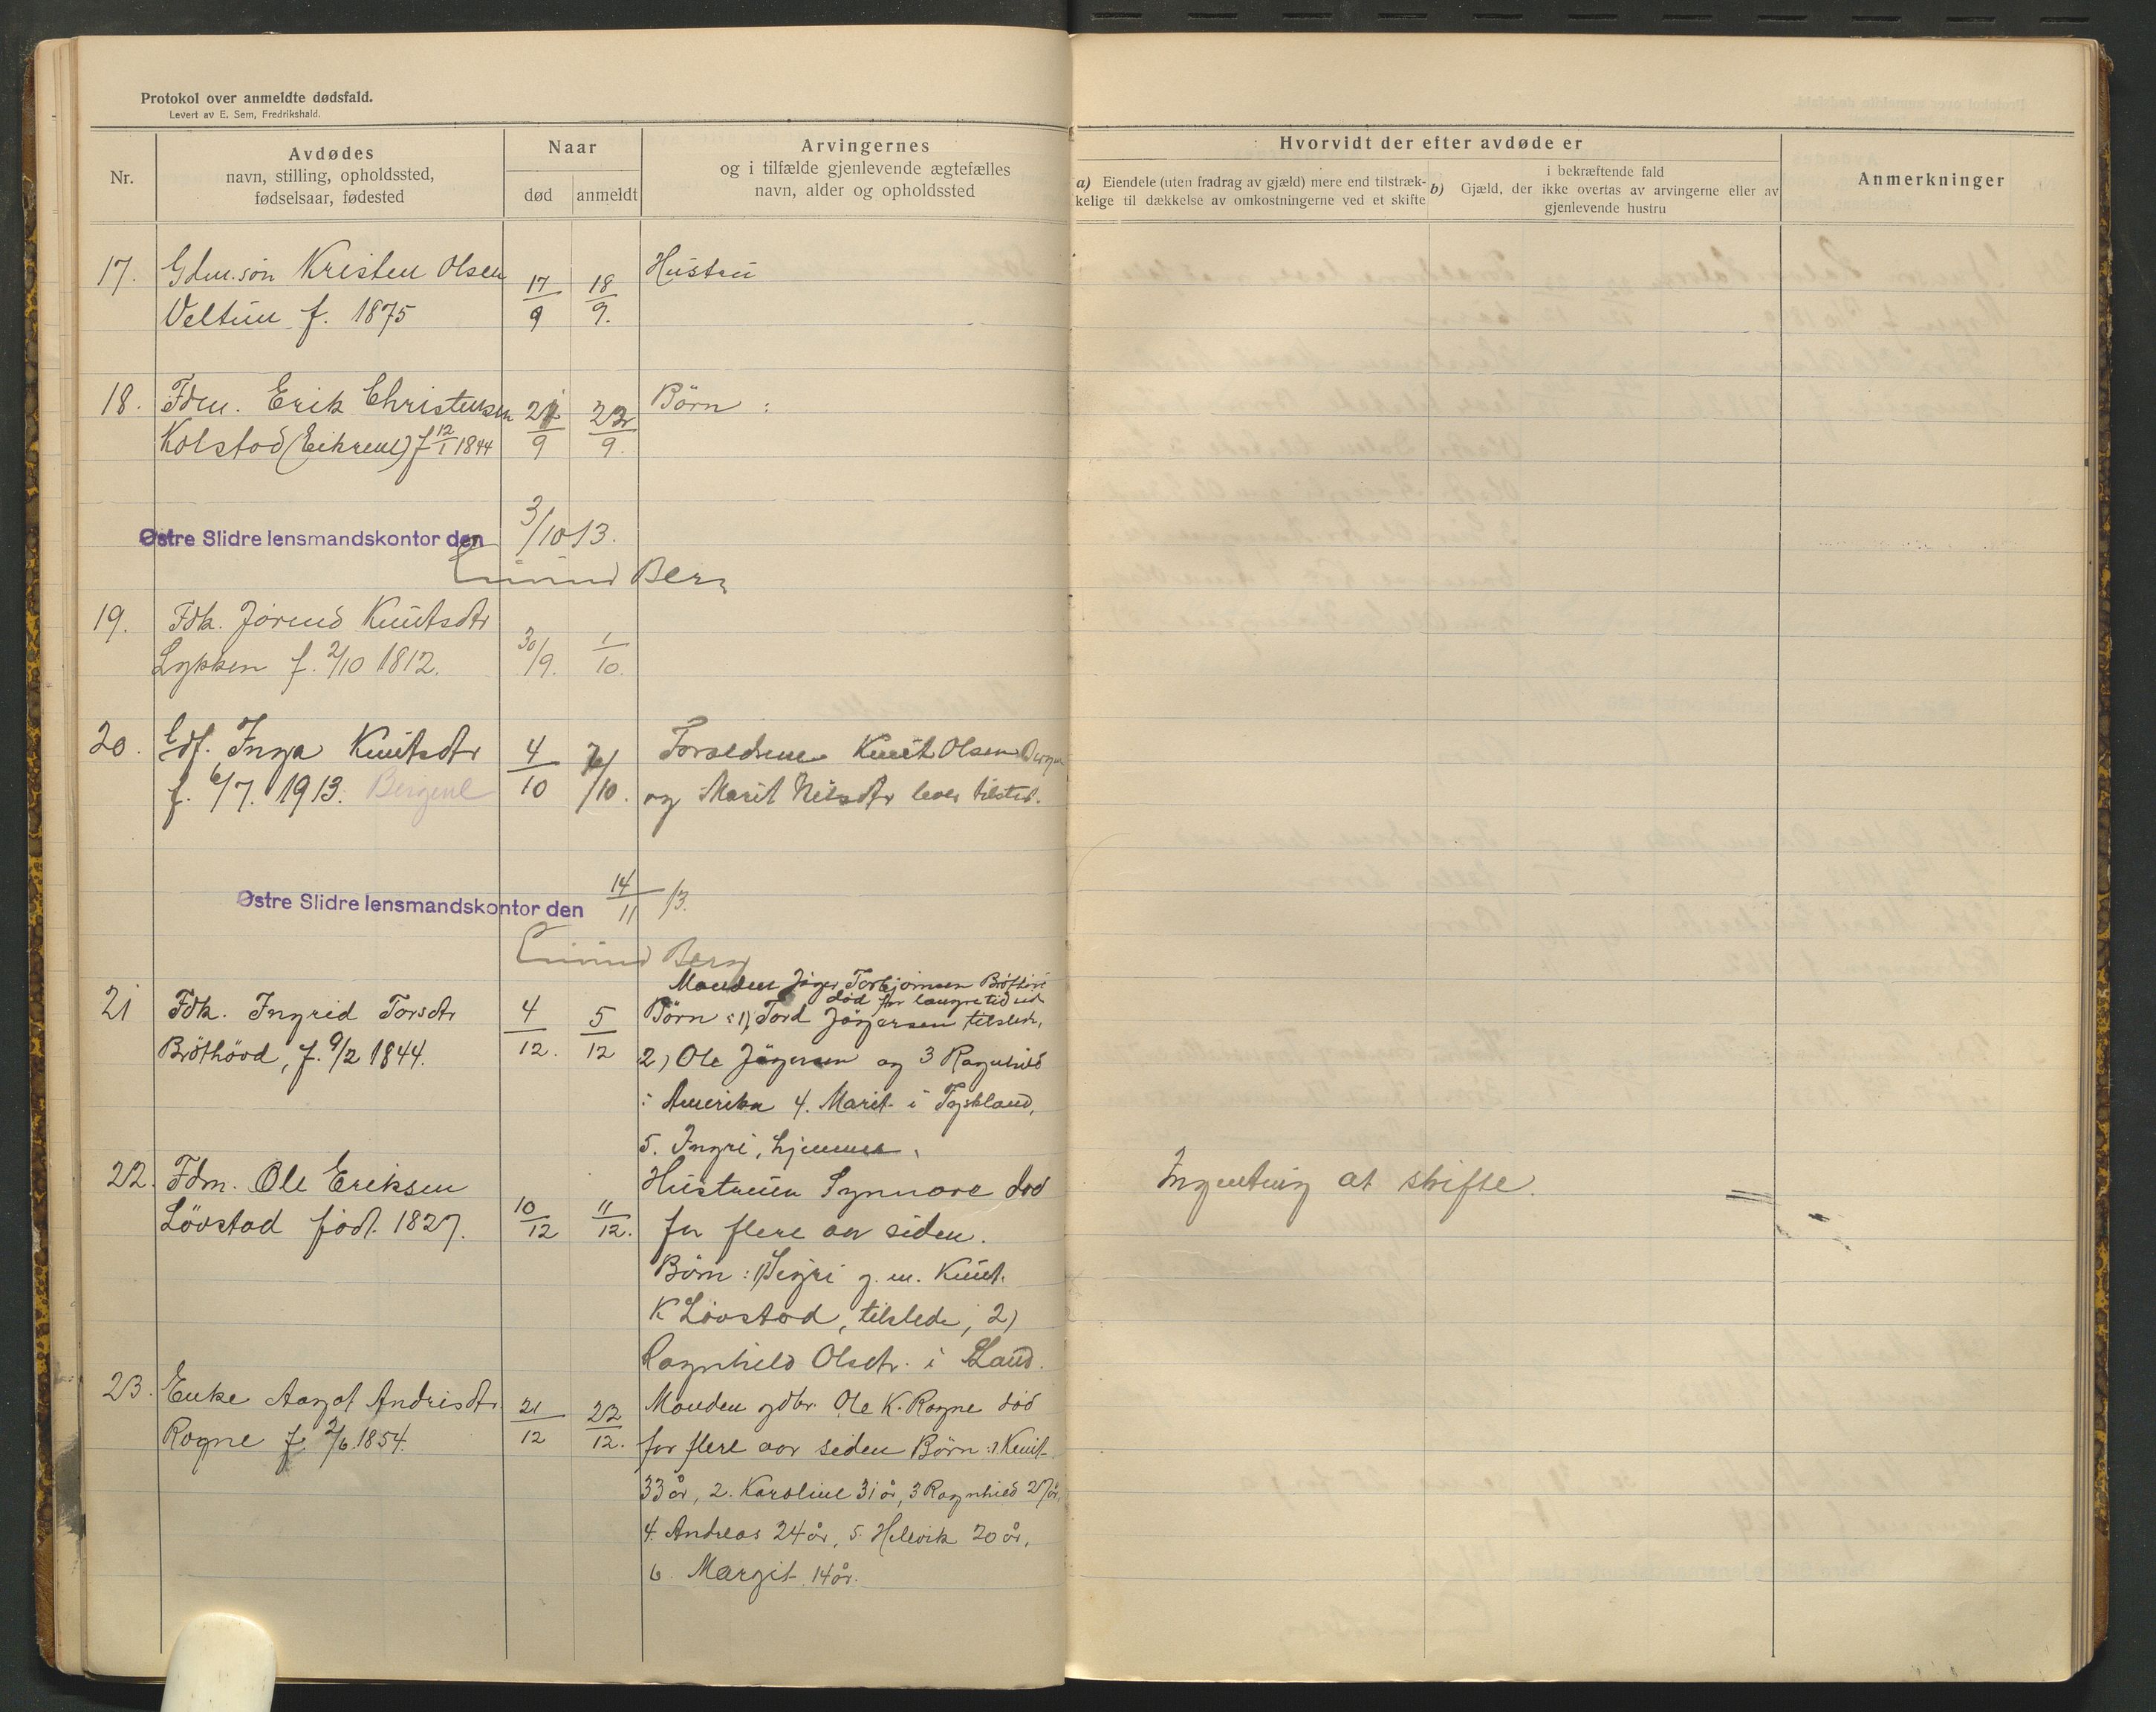 Protokol over anmeldte dødsfald.
Levert av E. Sem, Fredrikshald.
Nr.
Avdødes
navn, stilling, opholdssted,
fødselsaar, fødested
Naar
død
anmeldt
Arvingernes
og i tilfælde gjenlevende ægtefælles
navn, alder og opholdssted
Hvorvidt der efter avdøde er
a) Eiendele (uten fradrag av gjæld) mere end tilstræk-
kelige til dækkelse av omkostningerne ved et skifte
i bekræftende fald
b) Gjæld, der ikke overtas av arvingerne eller av
gjenlevende hustru
Anmerkninger
17. Gdm.søn Kristen Olsen 17/9 18/9. Hustru
Veltun f. 1875
18. Fdm. Erik Christensen 21/9 22/9. Børn :
Kolstad (Eikrem) f 12/1 1844
Østre Slidre lensmandskontor den 3/10 13.
Eivind Berg
19. Fdk. Jørend Knutsdtr 30/9. 1/10.
Lykken f. 2/10 1812.
20. Inga Knutsdtr 4/10 6/10. Forældrene Knut Olsen Bergene
f. 6/7. 1913. Bergene og Marit Nilsdtr lever tilsted.
Østre Slidre lensmandskontor den 14/11 13.
Eivind Berg
Manden Jøger Torbjørnsen Brøthøvd
død for længre tid sid
21 Fdk. Ingrid Torsdtr 4/12. 5/12 Børn : 1, Tord Jøgersen tilstede,
Brøthøvd, f. 9/2 1844. 2) Ole Jøgersen og 3 Ragnhild
i Amerika 4. Marit i Tyskland,
5. Ingri, hjemme.
22. Fdm. Ole Eriksen 10/12 11/12. Hustruen Synnøve død
Løvstad født. 1827. for flere aar siden.
Ingenting at skifte.
Børn : 1) Sigri g. m. Knut
K Løvstad, tilstede, 2)
Ragnhild Olsdtr. i Land.
23. Enke Aagot Andrisdtr. 21/12 22/12. Manden gdbr. Ole K. Rogne død
Rogne f. 2/6 1854. for flere aar siden Børn : 1 Knut
33 år, 2. Karoline 31 år, 3 Ragnhild 27 år,
4. Andreas 24 år, 5. Helevik 20 år,
6. Margit 14 år.